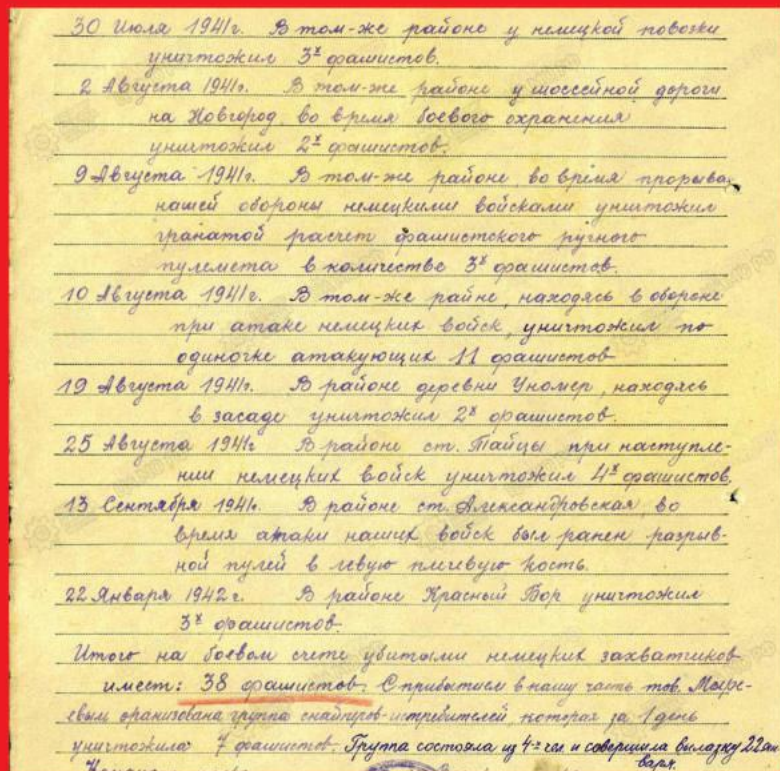 30 Июля 1941г. В том-же районе у немецкой повозки
уничтожил 3х фашистов.
2 Августа 1941г. В том-же районе у шоссейной дороги
на Новгород, во время боевого охранения
уничтожил 2х фашистов.
9 Августа 1941г. В том-же районе, во время прорыва
нашей обороны немецкими войсками уничтожил
гранатой расчет фашистского ручного
пулемета в количестве 3х фашистов.
10 Августа 1941г. В том-же райне, находясь в обороне
при атаке немецких войск, уничтожил по
одиночке атакующих 11 фашистов
19 Августа 1941г. В районе деревни Уномер, находясь
в засаде уничтожил 2х фашистов.
25 Августа 1941г В районе ст. Тайцы при наступле-
нии немецких войск уничтожил 4х фашистов.
13 Сентября 1941г. В районе ст. Александровская, во
время атаки наших войск был ранен разрыв-
ной пулей в левую плечевую кость.
22 Января 1942г. В районе Красный Бор уничтожил
3х фашистов.
Итого на боевом счете убитыми немецких захватчиков
имеет: 38 фашистов. С прибытием в нашу часть тов.
евым организована группа снайперов-истребителей которая за 1 день
уничтожила 7 фашистов. Группа состояла из 4-х чел и совершила вылазку 22 ян-
варя.